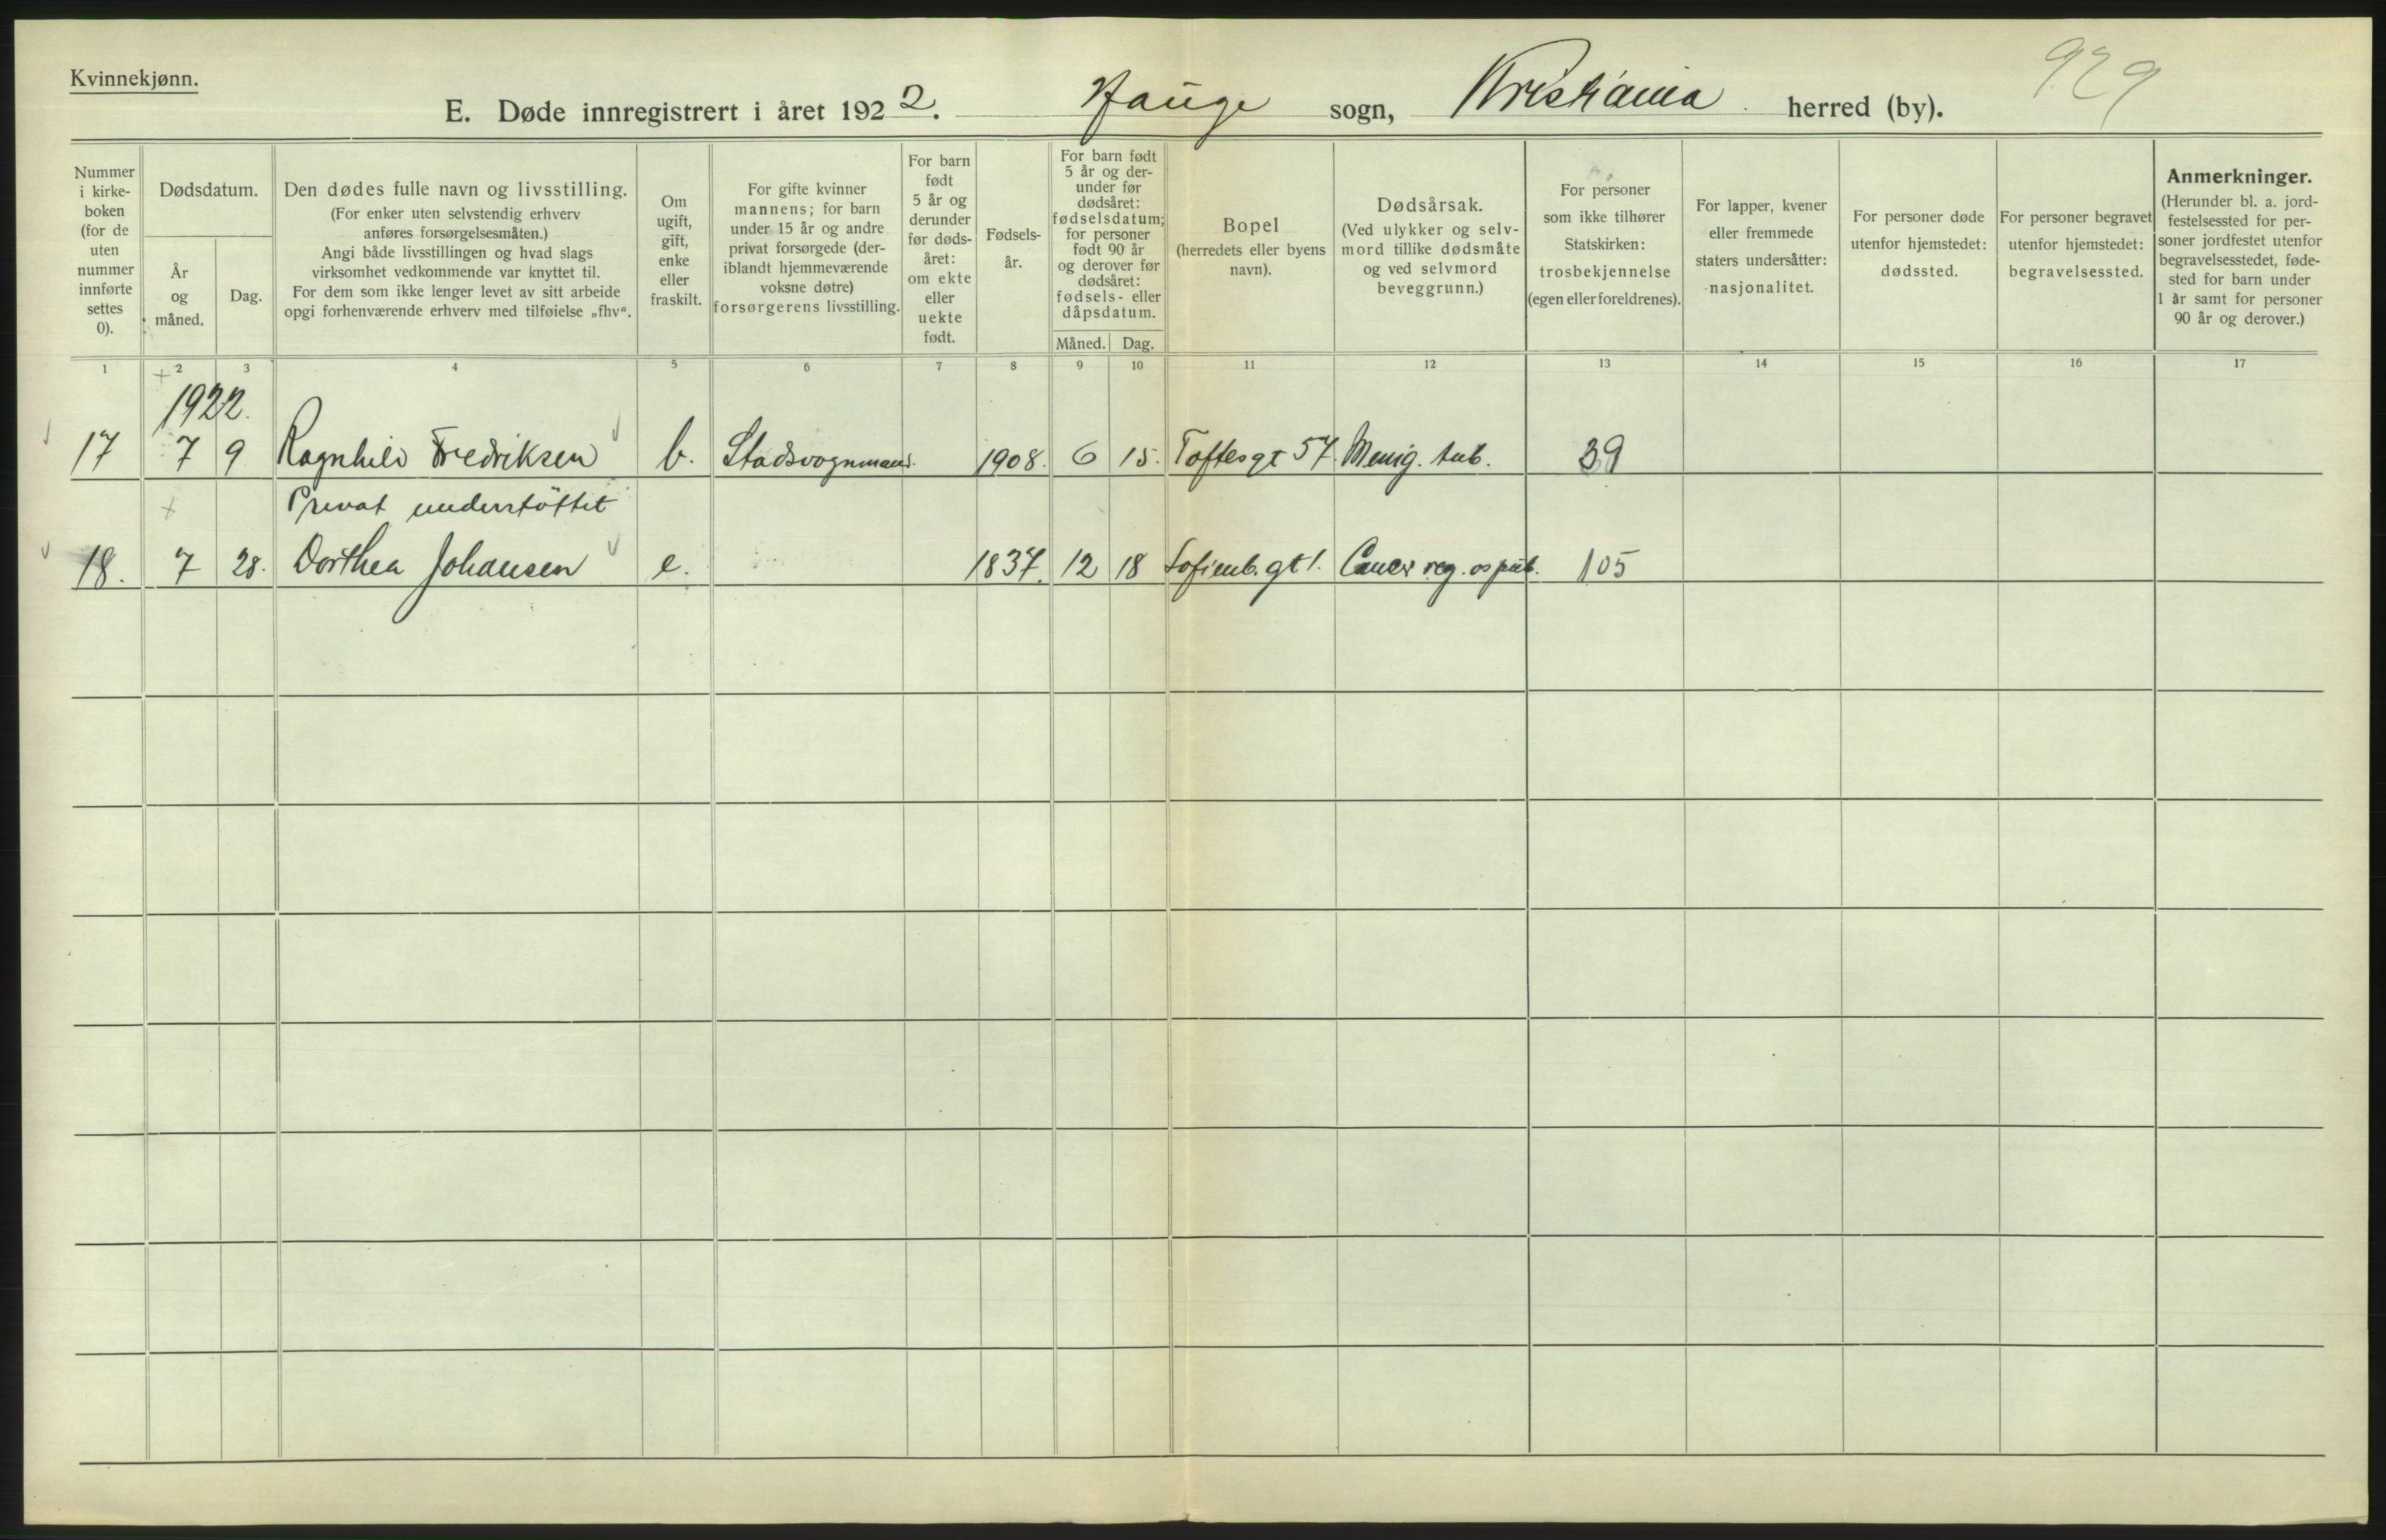 Kvinnekjønn.
929
E. Døde innregistrert i året 1922. Hauge sogn, Kristiania herred (by).
Nummer i kirke- boken (for de uten nummer innførte settes 0).
Dødsdatum.
År og måned.
Dag.
Den dødes fulle navn og livsstilling.
(For enker uten selvstendig erhverv
anføres forsørgelsesmåten.)
Angi både livsstillingen og hvad slags
virksomhet vedkommende var knyttet til.
For dem som ikke lenger levet av sitt arbeide
opgi forhenværende erhverv med tilføielse „fhv“.
Om ugift, gift, enke eller fraskilt.
For gifte kvinner
mannens; for barn
under 15 år og andre
privat forsørgede (der-
iblandt hjemmeværende
voksne døtre)
forsørgerens livsstilling.
For barn født 5 år og derunder før døds- året: om ekte eller uekte født.
Fødsels- år.
For barn født
5 år og der-
under før
dødsåret:
fødselsdatum;
for personer
født 90 år
og derover før
dødsåret:
fødsels- eller
dåpsdatum.
Måned. Dag.
Bopel
(herredets eller byens
navn).
Dødsårsak.
(Ved ulykker og selv-
mord tillike dødsmåte
og ved selvmord
beveggrunn.)
For personer
som ikke tilhører
Statskirken:
trosbekjennelse
(egen eller foreldrenes).
For lapper, kvener
eller fremmede
staters undersåtter:
nasjonalitet.
For personer døde
utenfor hjemstedet:
dødssted.
For personer begravet
utenfor hjemstedet:
begravelsessted.
Anmerkninger.
(Herunder bl. a. jord-
festelsessted for per-
soner jordfestet utenfor
begravelsesstedet, føde-
sted for barn under
1 år samt for personer
90 år og derover.)
1 2 3 4 5 6 7 8 9 10 11 12 13 14 15 16 17
1922.
17 7 9 Ragnhild Fredriksen b. Stadsvognmand. 1908. 6 15. Toftesgt 57. Menig. tub. 39
Privat understöttet
18. 7 28. Dorthea Johansen e. 1837. 12 18 Sofienb. gt 1. Cancer reg. os pub. 105